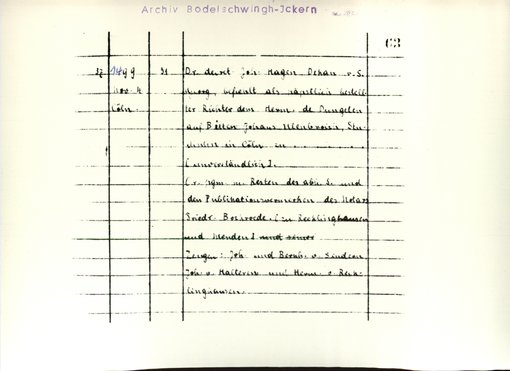 Archiv Bodelschwingh-Ickern
63
27 1499 31 Dr. decret. Joh. Hagen, Dekan v. S.
Nov. 4 Georg, befiehlt als päpstlich bestell-
Cöln ter Richter dem Herm. de Dungelen
auf Bitten Johans Ulenbroix, Stu-
denten in Cöln zu . . . . . . . . . .
[unverständlich].
Or. pgm. m. Resten des abh. S. und
den Publikationsvermerken des Notars
Friedr. Bockrode. [zu Recklinghausen
und Menden] und seiner
Zeugen: Joh. und Bernh. v. Sunderen
Joh. v. Halteren und Herm. v. Reck-
linghausen.